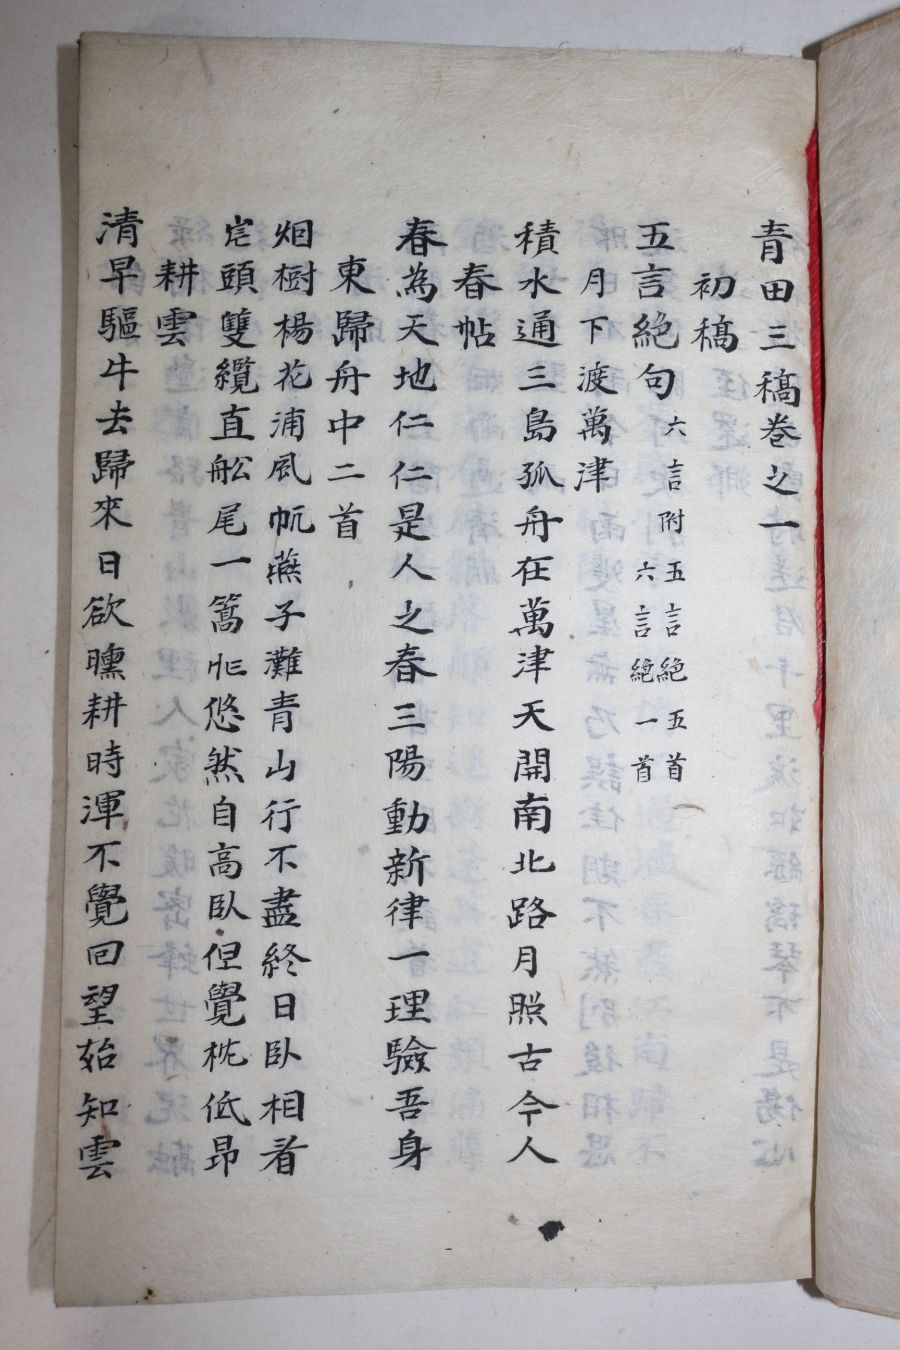 青田三稿卷之一
初稿
五言絶句 六言附 五言絶五首 六言絶一首
月下渡萬津
積水通三島孤舟在萬津天開南北路月照古今人
春帖
春為天地仁仁是人之春三陽動新律一理驗吾身
東歸舟中二首
烟樹楊花浦風帆燕子灘青山行不盡終日臥相看
頭雙纜直舩尾一篙忙悠然自高臥但覺枕低昂
耕雲
清早驅牛去歸來日欲曛耕時渾不覺回望始知雲